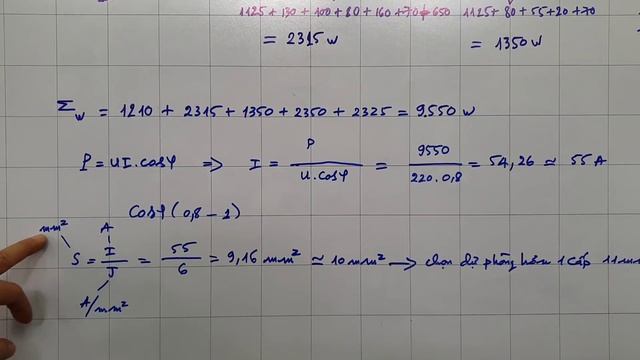 1125 + 130 + 100 + 80 + 160 + 70 + 650 1125 + 80 + 55 + 20 + 70
= 2315 w = 1350 w
Σw = 1210 + 2315 + 1350 + 2350 + 2325 = 9550 w
P = UI.cosφ ⇒ I = P / U.cosφ = 9550 / 220.0,8 = 54,26 ≃ 55 A
cosφ (0,8 – 1)
mm² A
S = I / J = 55 / 6 = 9,16 mm² ≃ 10 mm² → chọn dự phòng hơn 1 cấp 11 mm
A/mm²